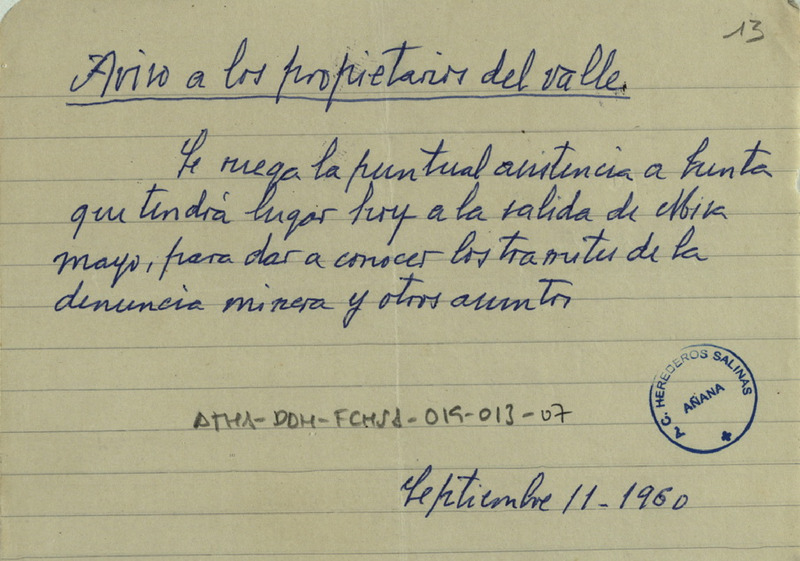 13
Aviso a los propietarios del valle.
Se ruega la puntual asistencia a Junta
que tendrá lugar hoy a la salida de Misa
mayo, para dar a conocer los tramites de la
denuncia minera y otros asuntos
J. C. HEREDEROS SALINAS
AÑANA
ATHA-DOH-FCHSA-019-013-07
Septiembre 11-1960